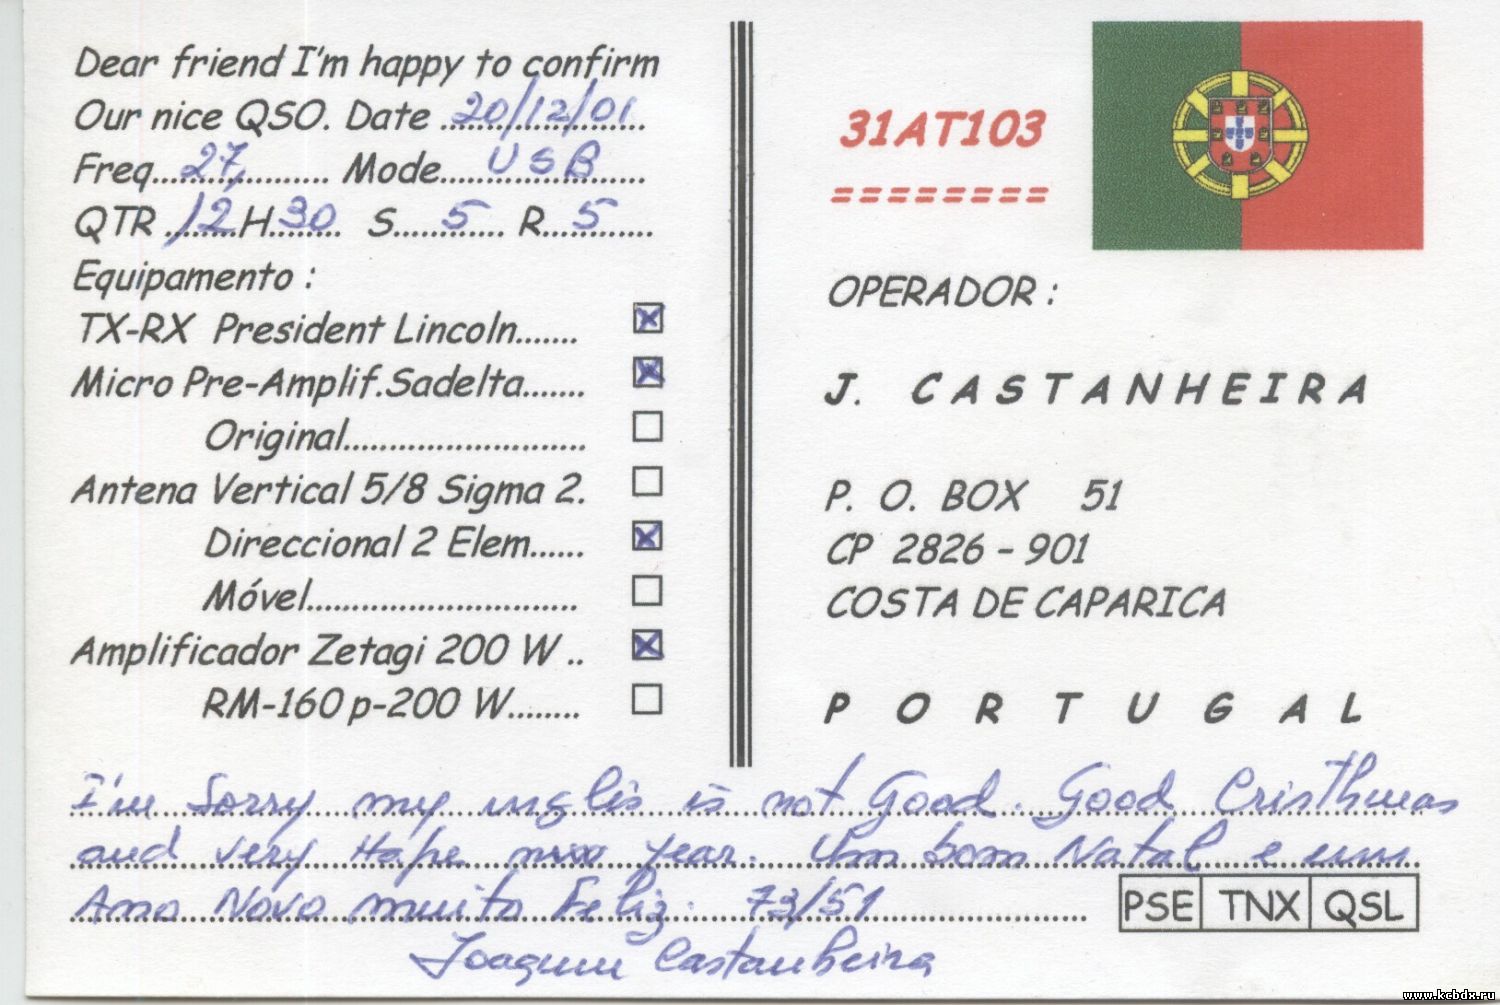 Dear friend I'm happy to confirm
Our nice QSO. Date 20/12/01
Freq. 27, Mode USB
QTR 12 H 30 S 5 R 5
Equipamento :
TX-RX President Lincoln.......
Micro Pre-Amplif.Sadelta.......
Original...........................
Antena Vertical 5/8 Sigma 2.
Direccional 2 Elem......
Móvel..............................
Amplificador Zetagi 200 W ..
RM-160 p-200 W........
31AT103
========
OPERADOR :
J. CASTANHEIRA
P. O. BOX 51
CP 2826 - 901
COSTA DE CAPARICA
PORTUGAL
I'm Sorry my inglis is not Good. Good Cristhmas
and very Hape year. Um bom Natal e um
Ano Novo muito Feliz. 73/51
Joaquim Castanheira
PSE TNX QSL
www.kcbdx.ru